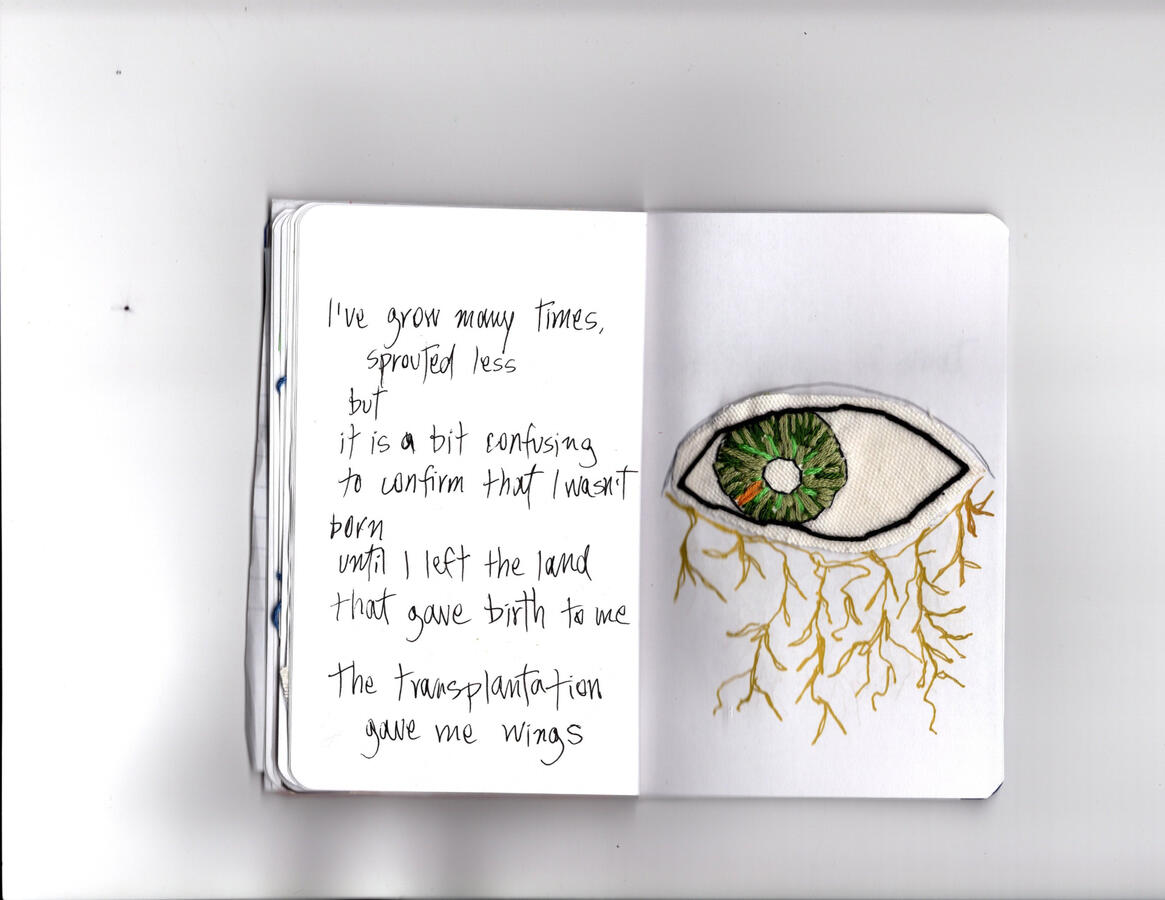 I've grow many times,
sprouted less
but
it is a bit confusing
to confirm that I wasn't
born
until I left the land
that gave birth to me
The transplantation
gave me wings